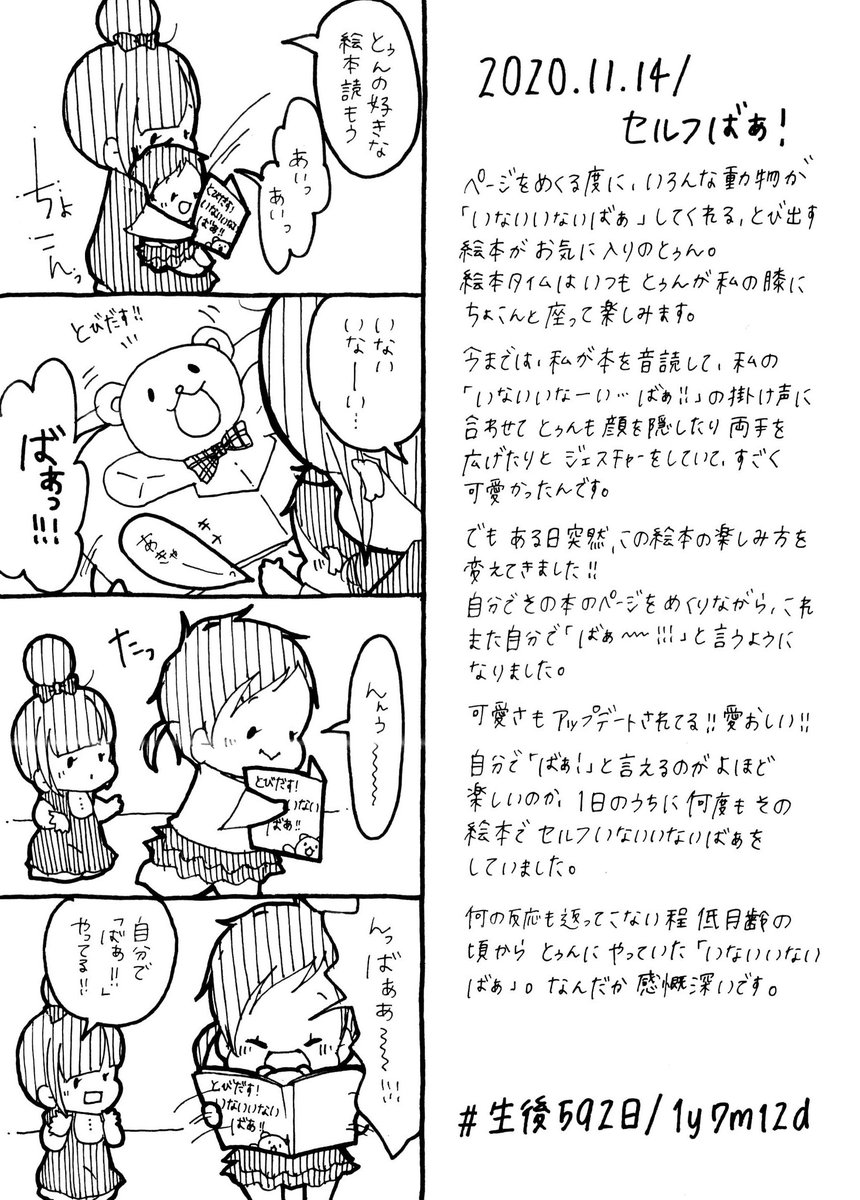 とぅんの好きな
絵本読もう
あいっ
あいっ
とびだす!
いないいない
ばぁ!!
ちょこんっ
いない
いなーい…
とびだす!!
ばぁっ!!!
キャ
あきゃっ
んんぅ〜〜〜
たっ
とびだす!
いない
ばぁ!!
んっばぁぁ〜〜!!!
自分で
「ばぁ!!」
やってる!!
とびだす!
いないいない
ばぁ!!
2020.11.14/
セルフばぁ!
ページをめくる度に、いろんな動物が
「いないいないばぁ」してくれる、とび出す
絵本がお気に入りのとぅん。
絵本タイムはいつもとぅんが私の膝に
ちょこんと座って楽しみます。
今までは、私が本を音読して、私の
「いないいなーい…ばぁ!!」の掛け声に
合わせてとぅんも顔を隠したり両手を
広げたりとジェスチャーをしていて、すごく
可愛かったんです。
でもある日突然、この絵本の楽しみ方を
変えてきました!!
自分でその本のページをめくりながら、これ
また自分で「ばぁ〜〜!!!」と言うように
なりました。
可愛さもアップデートされてる!!愛おしい!!
自分で「ばぁ!」と言えるのがよほど
楽しいのか、1日のうちに何度もその
絵本でセルフいないいないばぁを
していました。
何の反応も返ってこない程低月齢の
頃からとぅんにやっていた「いないいない
ばぁ」。なんだか感慨深いです。
#生後592日/1y7m12d